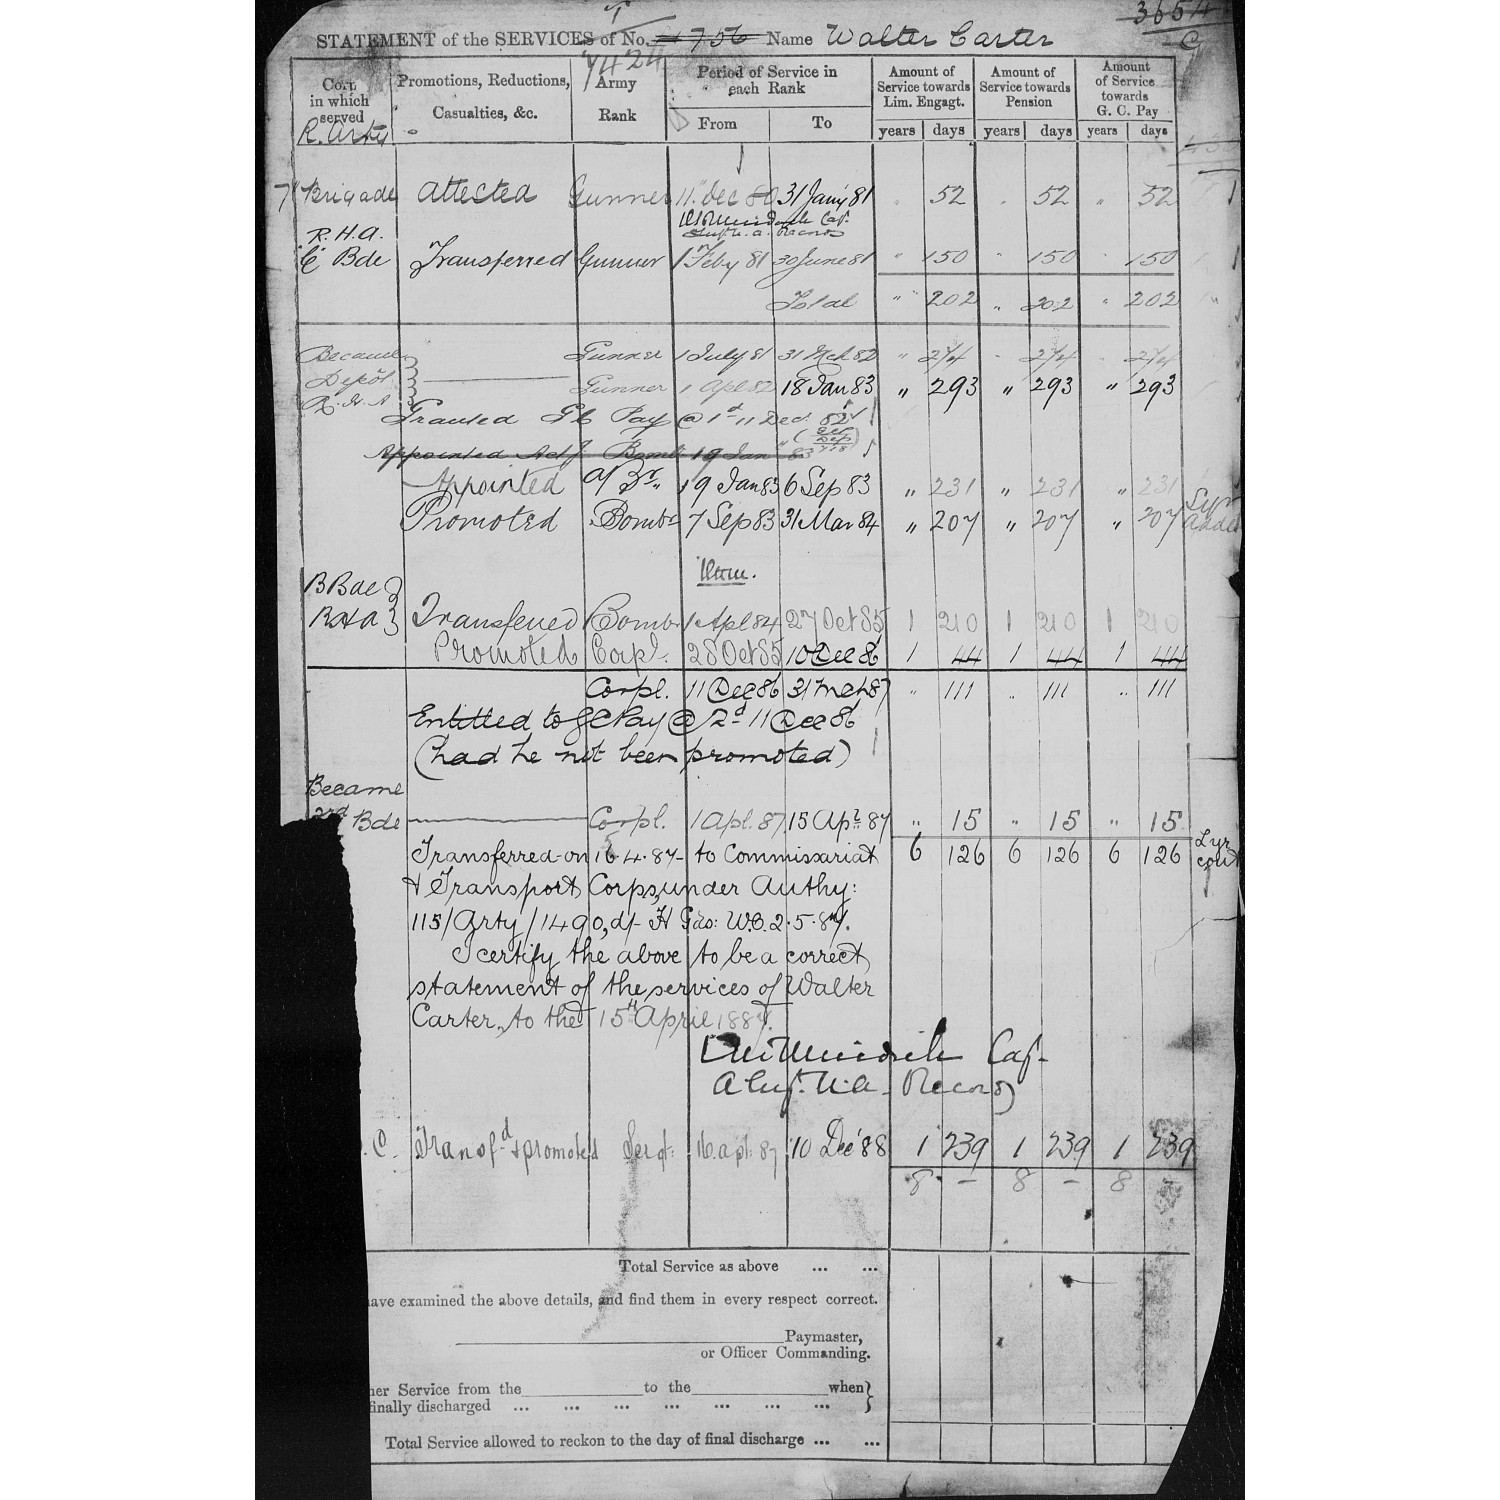 3654
STATEMENT of the SERVICES of No. 756 Name Walter Carter
7424
Corps in which served
Promotions, Reductions, Casualties, &c.
Army Rank
Period of Service in each Rank
From To
Amount of Service towards Lim. Engagt.
Amount of Service towards Pension
Amount of Service towards G. C. Pay
years days years days years days
R. Arty
7" Brigade Attested Gunner 11 Dec 80 31 Jany 81 " 52 " 52 " 52
R.H.A.
Records
"C" Bde Transferred Gunner 1 Feby 81 30 June 81 " 150 " 150 " 150
Total " 202 " 202 " 202
Became Gunner 1 July 81 31 Mch 82 " 274 " 274 " 274
Depôt Gunner 1 Apl 82 18 Jan 83 " 293 " 293 " 293
R.H.A
Granted GC Pay @ 1d 11 Dec. 82
Appointed Actg Bombr 19 Jan 83
Appointed a/Br. 19 Jan 83 6 Sep 83 " 231 " 231 " 231
Promoted Bombr 7 Sep 83 31 Mar 84 " 207 " 207 " 207
B Bde
RHA Transferred Bombr 1 Apl 84 27 Oct 85 1 210 1 210 1 210
Promoted Corpl. 28 Oct 85 10 Dec 86 1 44 1 44 1 44
Corpl. 11 Dec 86 31 Mch 87 " 111 " 111 " 111
Entitled to GC Pay @ 2d 11 Dec 86
(had he not been promoted)
Became
2rd Bde Corpl. 1 Apl. 87 15 Apl 87 " 15 " 15 " 15
Transferred on 16.4.87 - to Commissariat 6 126 6 126 6 126
& Transport Corps, under Authy:
115/Arty/1490, d/- H Gds: W.O. 2.5.87.
I certify the above to be a correct
statement of the services of Walter
Carter, to the 15th April 1887.
Capt
R.A. Records
. C. Transfd & promoted Sergt: 16. apl: 87 10 Dec '88 1 239 1 239 1 239
8 - 8 - 8
Total Service as above ... ...
have examined the above details, and find them in every respect correct.
Paymaster,
or Officer Commanding.
her Service from the to the when }
finally discharged ... ... ... ... ... ... ... }
Total Service allowed to reckon to the day of final discharge ... ...